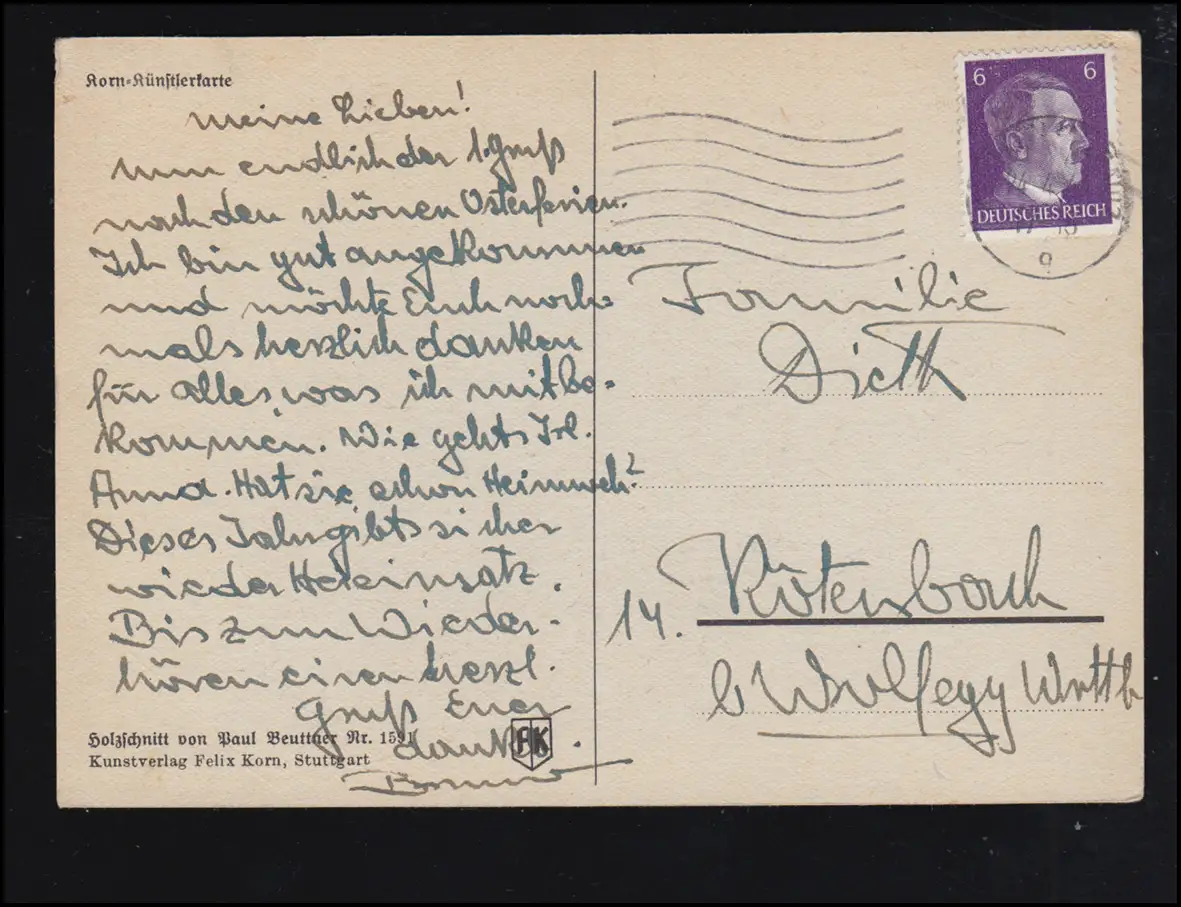 Korn-Künstlerkarte
meine Lieben!
nun endlich der 1. Gruß
nach den schönen Osterferien.
Ich bin gut angekommen
und möchte Euch noch=
mals herzlich danken
für alles, was ich mitbe=
kommen. Wie gehts Frl.
Anna. Hat sie schon Heimweh?
Dieses Jahr gibts sicher
wieder
Bis zum Wieder-
hören einen herzl.
Gruß Euer
dank
Holzschnitt von Paul Beuttner Nr. 1591
Kunstverlag Felix Korn, Stuttgart
FK
6 6
DEUTSCHES REICH
9
Familie
Dieth
14. Rötenbach
b Wolfegg Württb